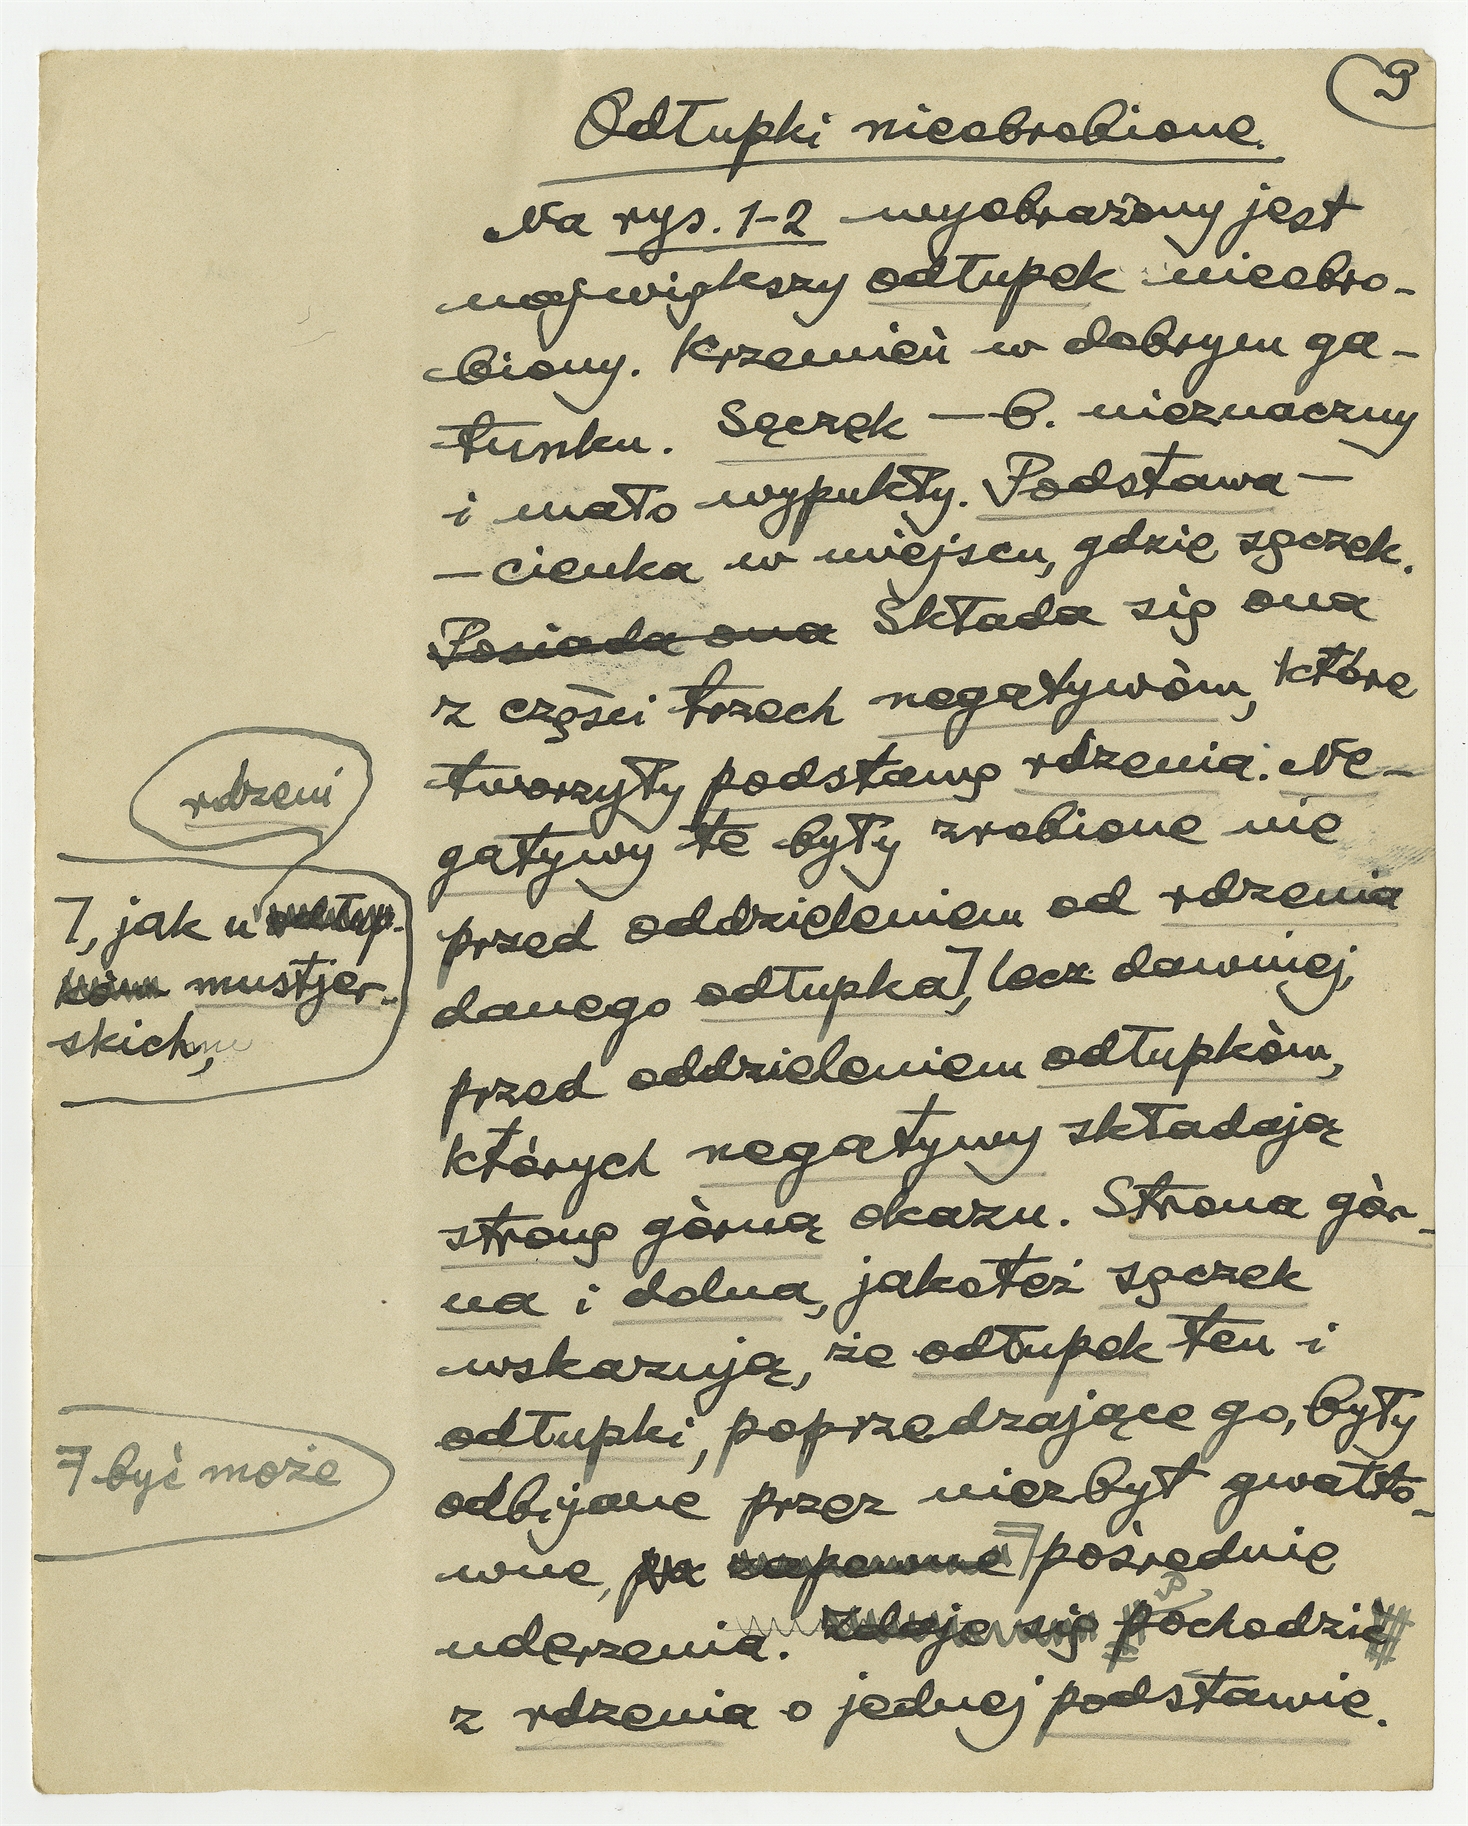 9
Odłupki nieobrobione.
Na rys. 1-2 wyobrażony jest
największy odłupek nieobro-
biony. Krzemień w dobrym ga-
tunku. Sęczek — b. nieznaczny
i mało wypukły. Podstawa —
— cienka w miejscu, gdzie sęczek.
Posiada ona Składa się ona
z części trzech negatywów, które
tworzyły podstawę rdzenia. Ne-
gatywy te były zrobione nie
przed oddzieleniem od rdzenia
danego odłupka], lecz dawniej,
przed oddzieleniem odłupków,
których negatywy składają
stronę górną okazu. Strona gór-
na i dolna, jakoteż sęczek
wskazują, że odłupek ten i
odłupki, poprzedzające go, były
odbijane przez niezbyt gwałto-
wne, zapewne pośrednie
uderzenia. Zdaje się pochodzić
z rdzenia o jednej podstawie.
rdzeni
], jak u odłup-
ków mustjer-
skich,
] być może